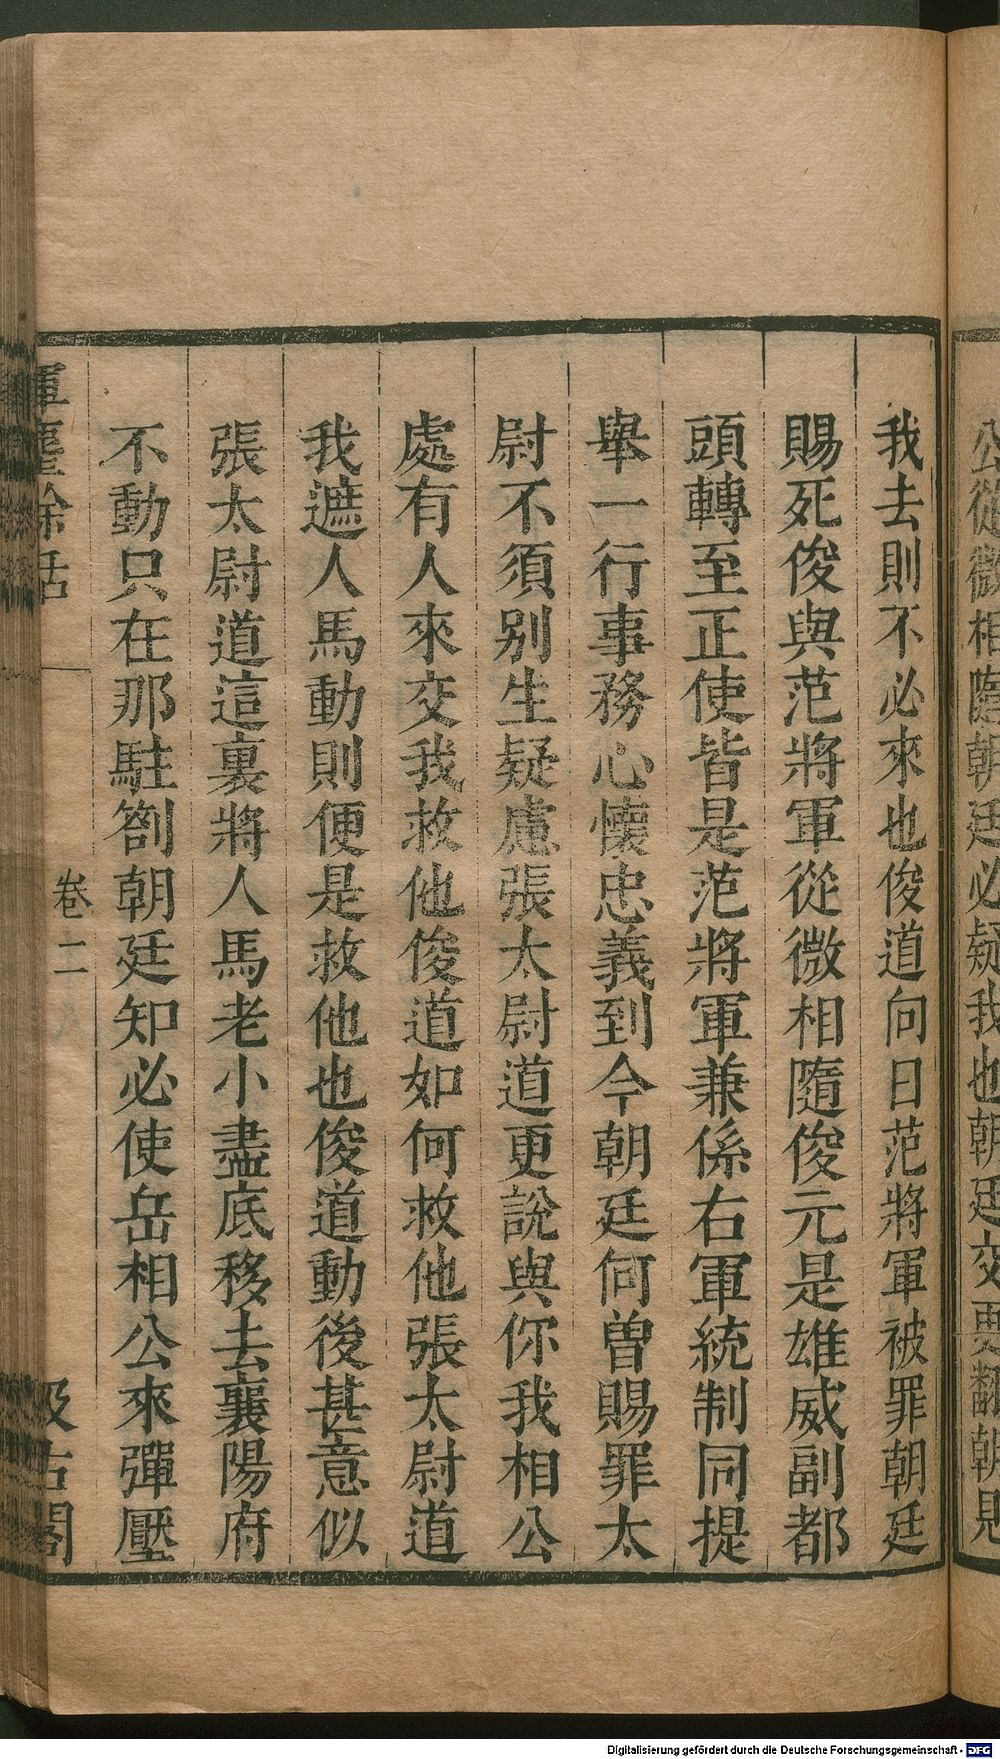 公從微相隨朝廷必疑我也朝廷交更翻朝
我去則不必來也俊道向日范將軍被罪朝廷
賜死俊與范將軍從微相隨俊元是雄威副都
頭轉至正使皆是范將軍兼係右軍統制同提
舉一行事務心懷忠義到今朝廷何曾賜罪太
尉不須别生疑慮張太尉道更說與你我相公
處有人來交我救他俊道如何救他張太尉道
我遮人馬動則便是救他也俊道動後甚意似
張太尉道這裏將人馬老小盡底移去襄陽府
不動只在那駐劄朝廷知必使岳相公來彈壓
揮麈餘話
卷二
汲古閣
Digitalisierung gefördert durch die Deutsche Forschungsgemeinschaft - DFG